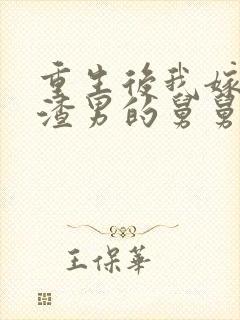 重生後我嫁
渣男的舅舅
王保華